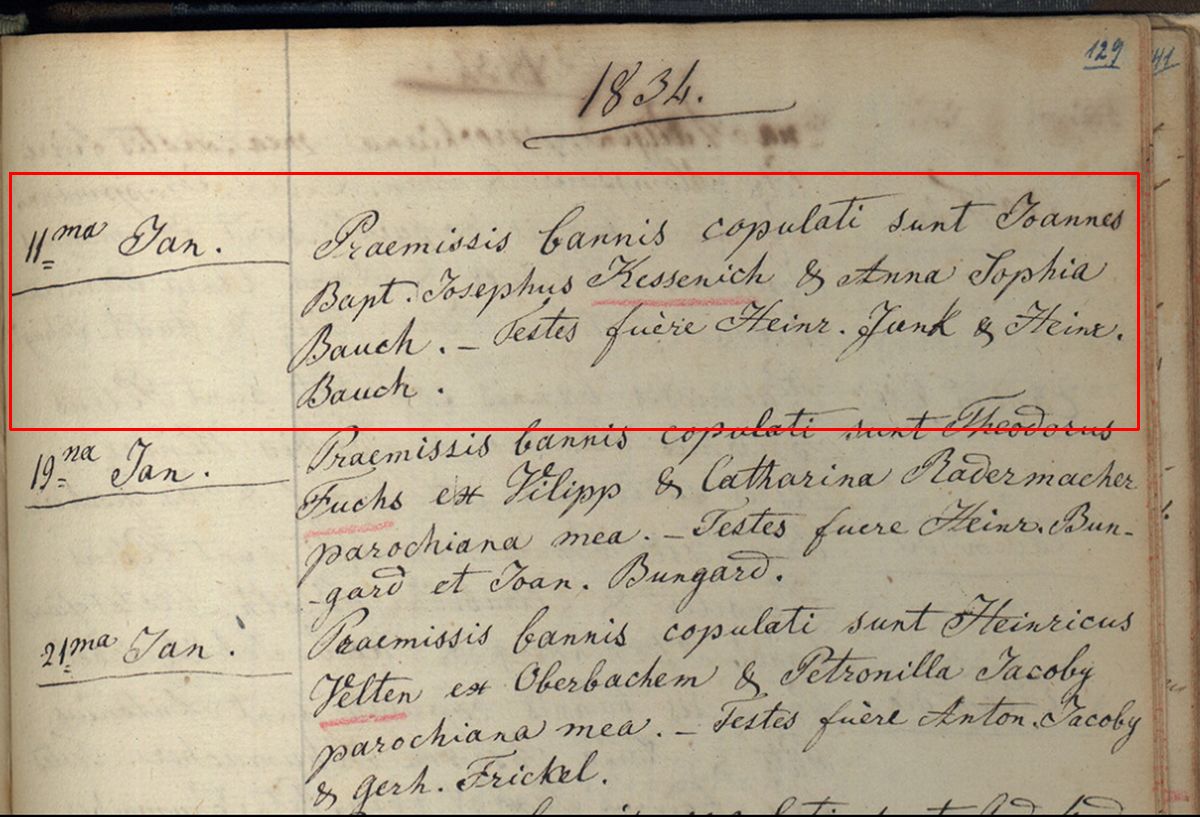 129
41
1834.
11ma Jan.
Praemissis bannis copulati sunt Joannes
Bapt. Josephus Kessenich & Anna Sophia
Bauch. – Testes fuère Heinr. Junk & Heinr.
Bauch.
19na Jan.
Praemissis bannis copulati sunt Theodorus
Fuchs ex Vilipp & Catharina Radermacher
parochiana mea. – Testes fuere Heinr. Bun-
-gard et Joan. Bungard.
21ma Jan.
Praemissis bannis copulati sunt Heinricus
Velten ex Oberbachem & Petronilla Jacoby
parochiana mea. – Testes fuère Anton. Jacoby
& Gerh. Frickel.